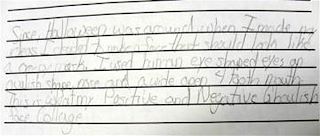 Since Halloween was around when I made my
I decided to make a face that should look like
a mask. I used human eye shaped eyes, an
shape nose and a wide open 4 tooth mouth.
this is what my Positive and Negative Ghoulish
face Collage